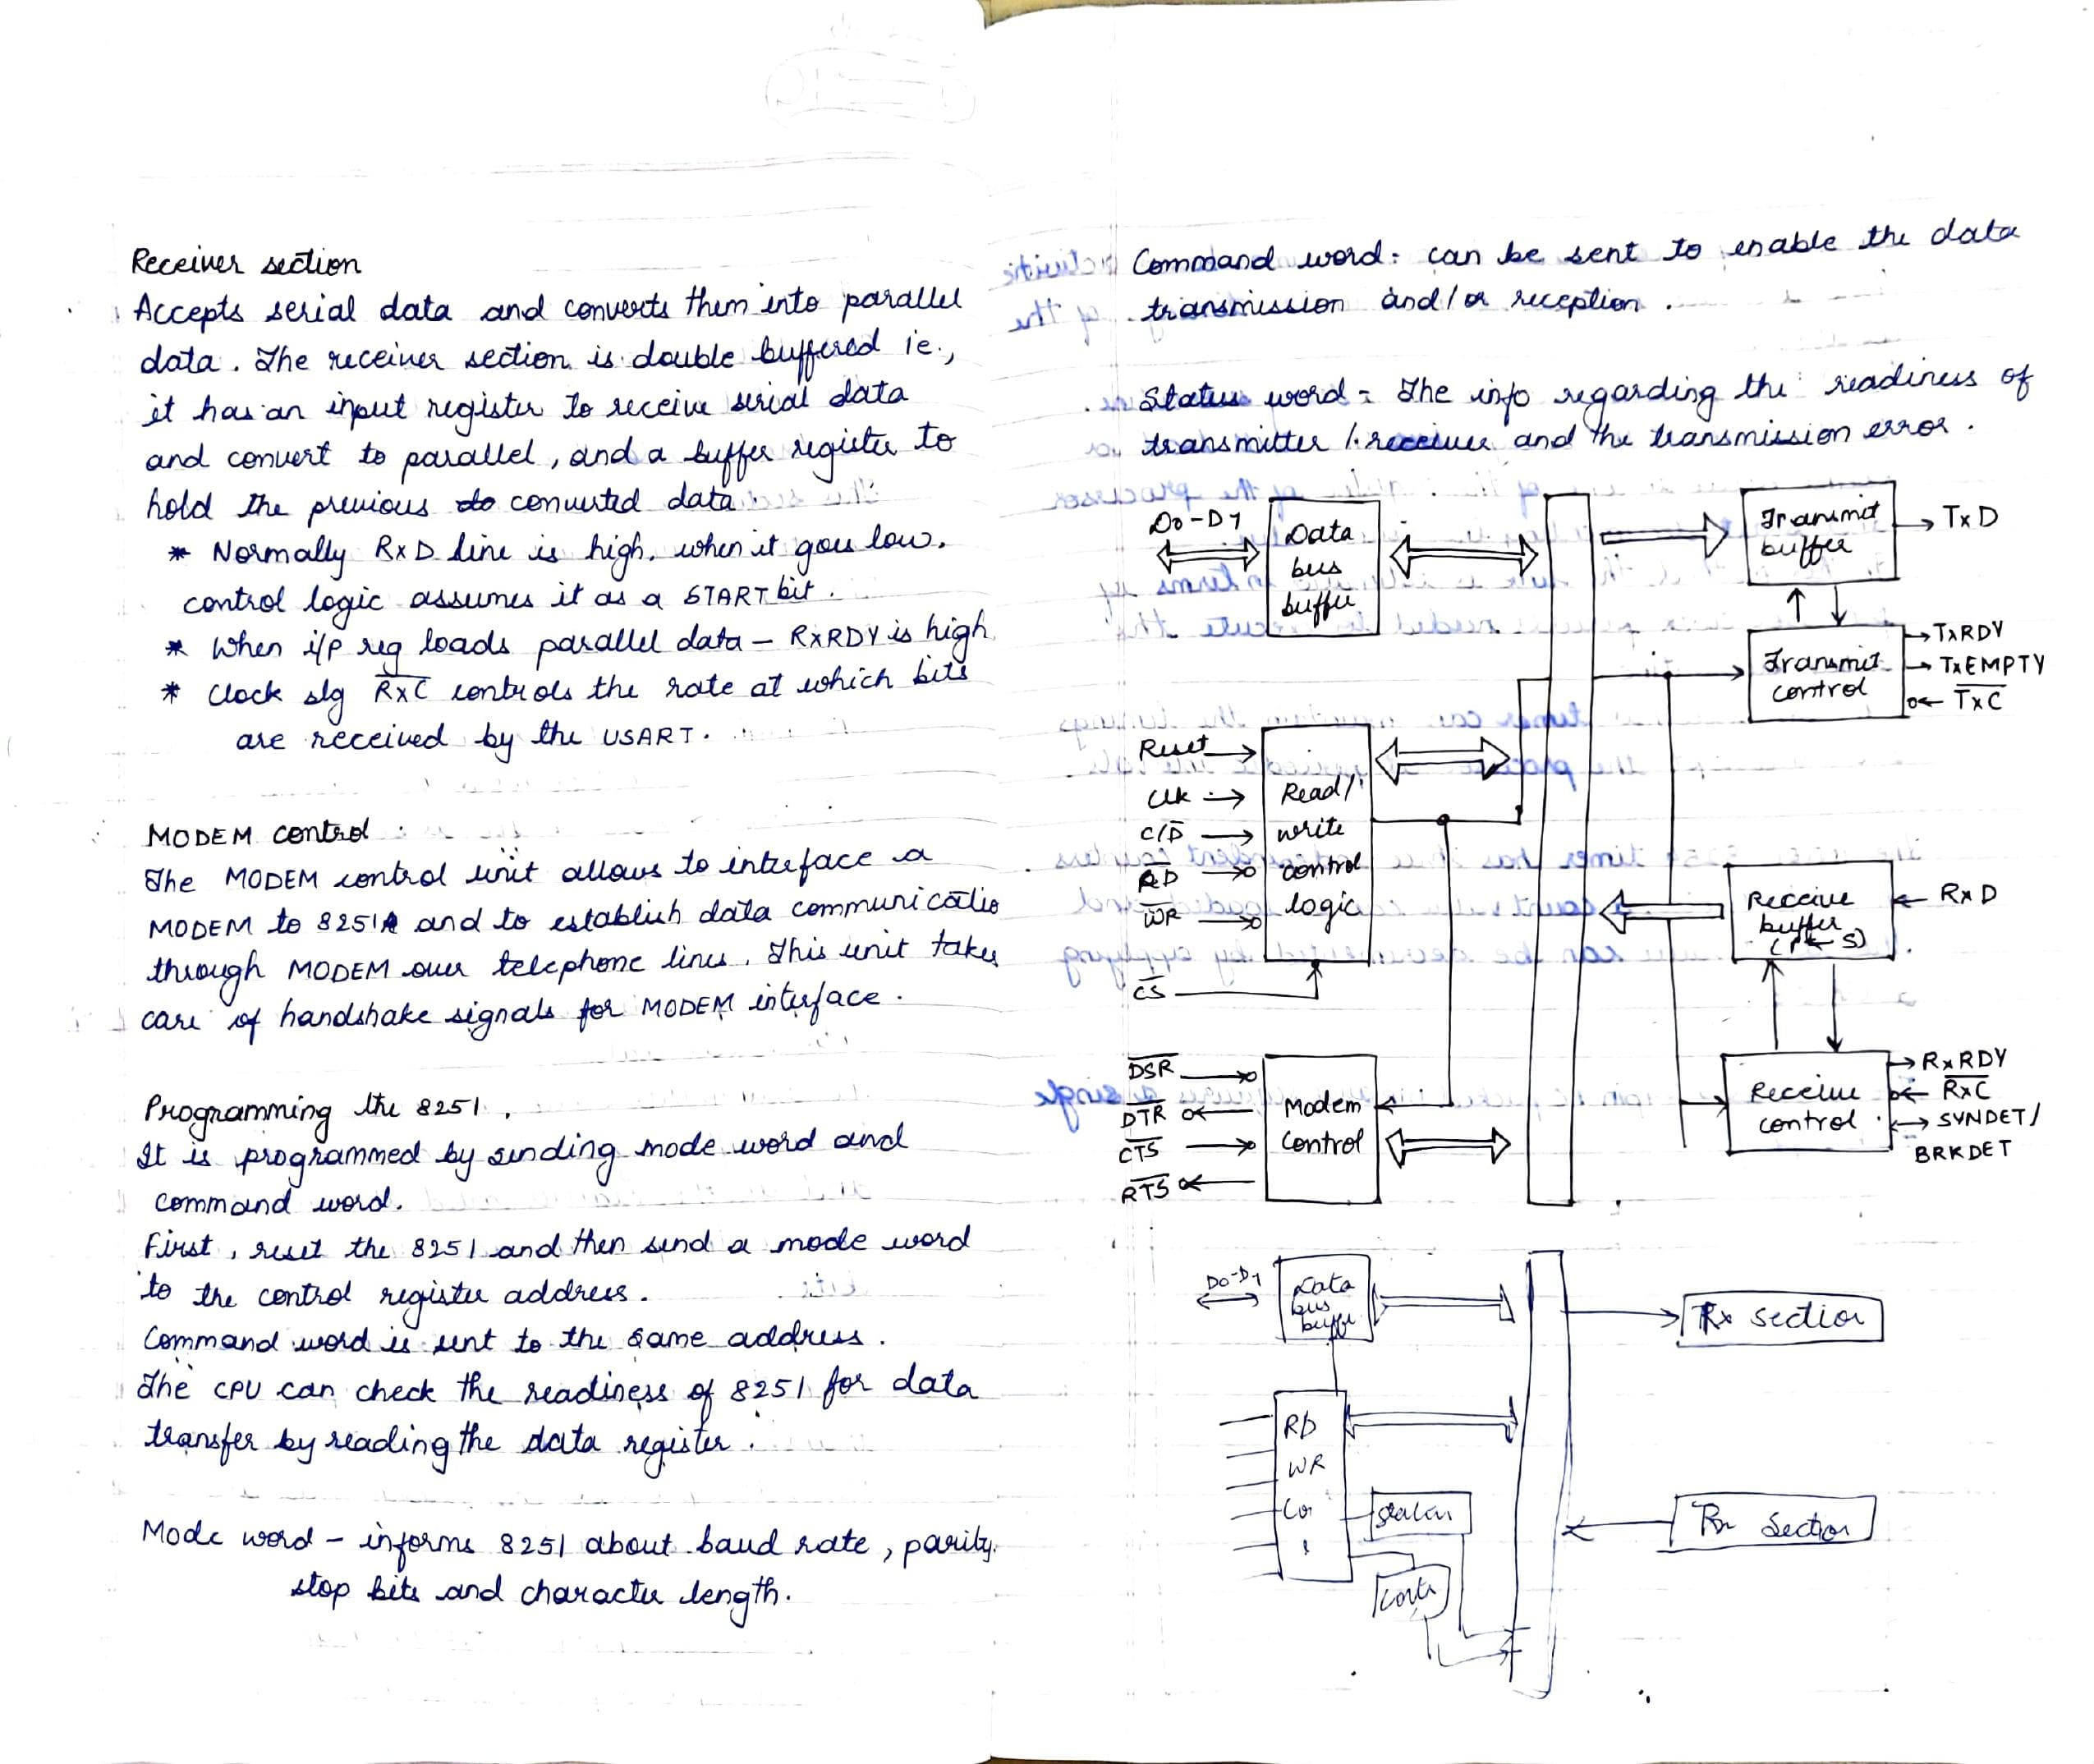 Receiver section
Accepts serial data and converts them into parallel
data. The receiver section is double buffered ie.,
it has an input register to receive serial data
and convert to parallel, and a buffer register to
hold the previous converted data.
* Normally RxD line is high. when it goes low,
control logic assumes it as a START bit.
* When i/p reg loads parallel data - RxRDY is high
* Clock slg R̅x̅C̅ controls the rate at which bits
are received by the USART.
MODEM control
The MODEM control unit allows to interface a
MODEM to 8251A and to establish data communicatio
through MODEM over telephone lines. This unit takes
care of handshake signals for MODEM interface.
Programming the 8251.
It is programmed by sending mode word and
command word.
First, reset the 8251 and then send a mode word
to the control register address.
Command word is sent to the same address.
The CPU can check the readiness of 8251 for data
transfer by reading the data register.
Mode word - informs 8251 about baud rate, parity,
stop bits and character length.
Command word: can be sent to enable the data
transmission and/or reception.
Status word = The info regarding the readiness of
transmitter / receiver and the transmission error.
D0-D7
Data
bus
buffer
Transmit
buffer
TxD
Transmit
control
TxRDY
TxEMPTY
T̅x̅C̅
Reset
Clk
C/D̅
R̅D̅
W̅R̅
C̅S̅
Read/
write
control
logic
Receive
buffer
(P ← S)
RxD
D̅S̅R̅
D̅T̅R̅
C̅T̅S̅
R̅T̅S̅
Modem
Control
Receive
control
RxRDY
R̅x̅C̅
SYNDET/
BRKDET
D0-D7
Data
bus
buffer
section
RD
WR
Con
status
section